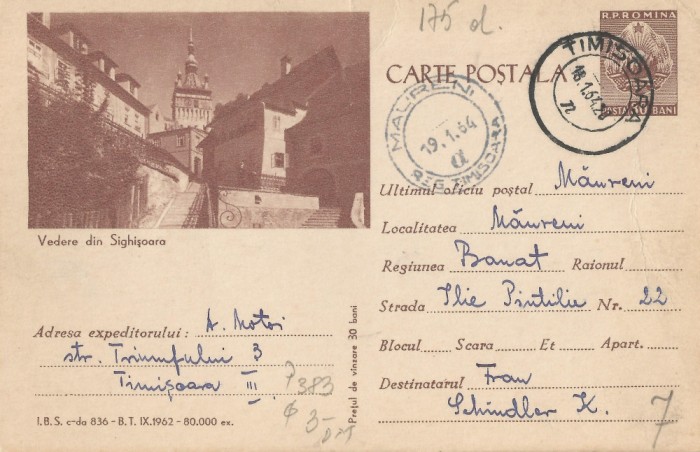 175 d.
R.P.ROMINA
CARTE POȘTALA
POSTA 30 BANI
TIMIȘOARA
18.1.64.20
72
MAURENI
19.1.64
a
REG. TIMISOARA
Vedere din Sighișoara
Ultimul oficiu poștal Măureni
Localitatea Măureni
Regiunea Banat Raionul
Strada Ilie Pintilie Nr. 22
Blocul Scara Et Apart.
Destinatarul Frau
Schindler K.
7
Adresa expeditorului: A. Motoi
str. Triumfului 3
Timișoara III
P383
3-
Prețul de vînzare 30 bani
I.B.S. c-da 836 - B.T. IX.1962 - 80.000 ex.